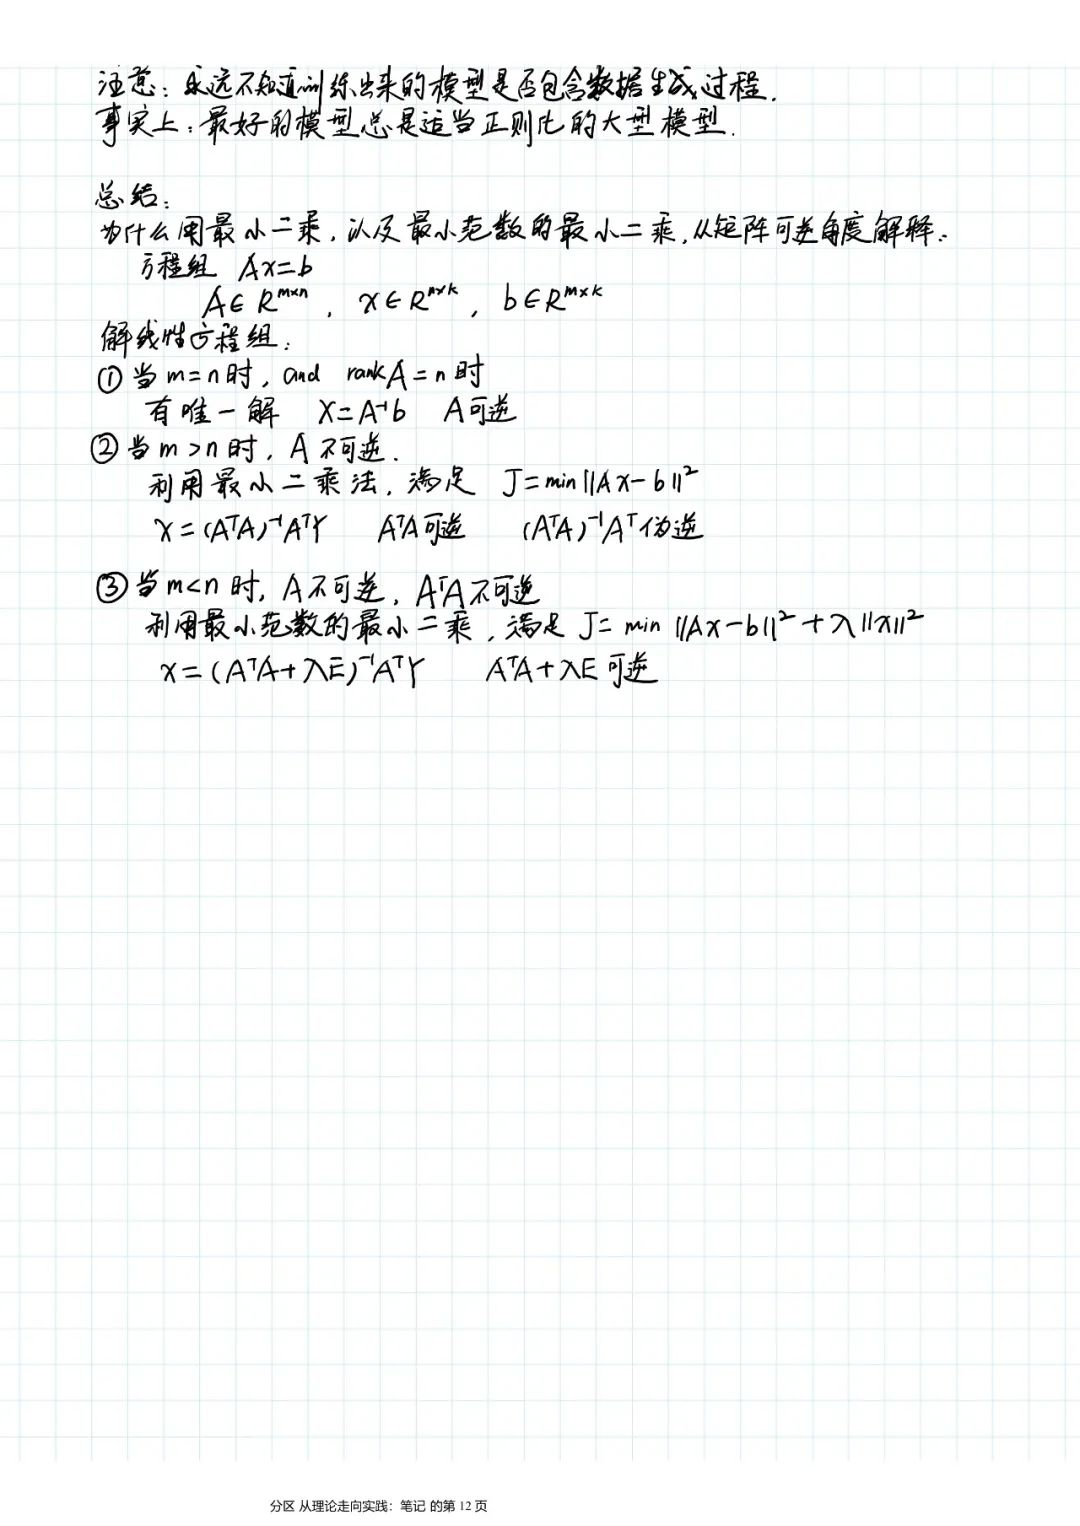 注意：永远不知道训练出来的模型是否包含数据生成过程.
事实上：最好的模型总是适当正则化的大型模型.
总结：
为什么用最小二乘，以及最小范数的最小二乘，从矩阵可逆角度解释：
方程组 Ax=b
A∈R^{m×n}, x∈R^{n×k}, b∈R^{m×k}
解线性方程组：
① 当m=n时, and rankA=n时
有唯一解 X=A⁻¹b A可逆
② 当m>n时, A不可逆.
利用最小二乘法，满足 J=min||Ax-b||²
x=(AᵀA)⁻¹AᵀY AᵀA可逆 (AᵀA)⁻¹Aᵀ伪逆
③ 当m<n时, A不可逆, AᵀA不可逆
利用最小范数的最小二乘，满足 J= min ||Ax-b||²+λ||x||²
x=(AᵀA+λE)⁻¹AᵀY AᵀA+λE可逆
分区 从理论走向实践：笔记 的第 12 页